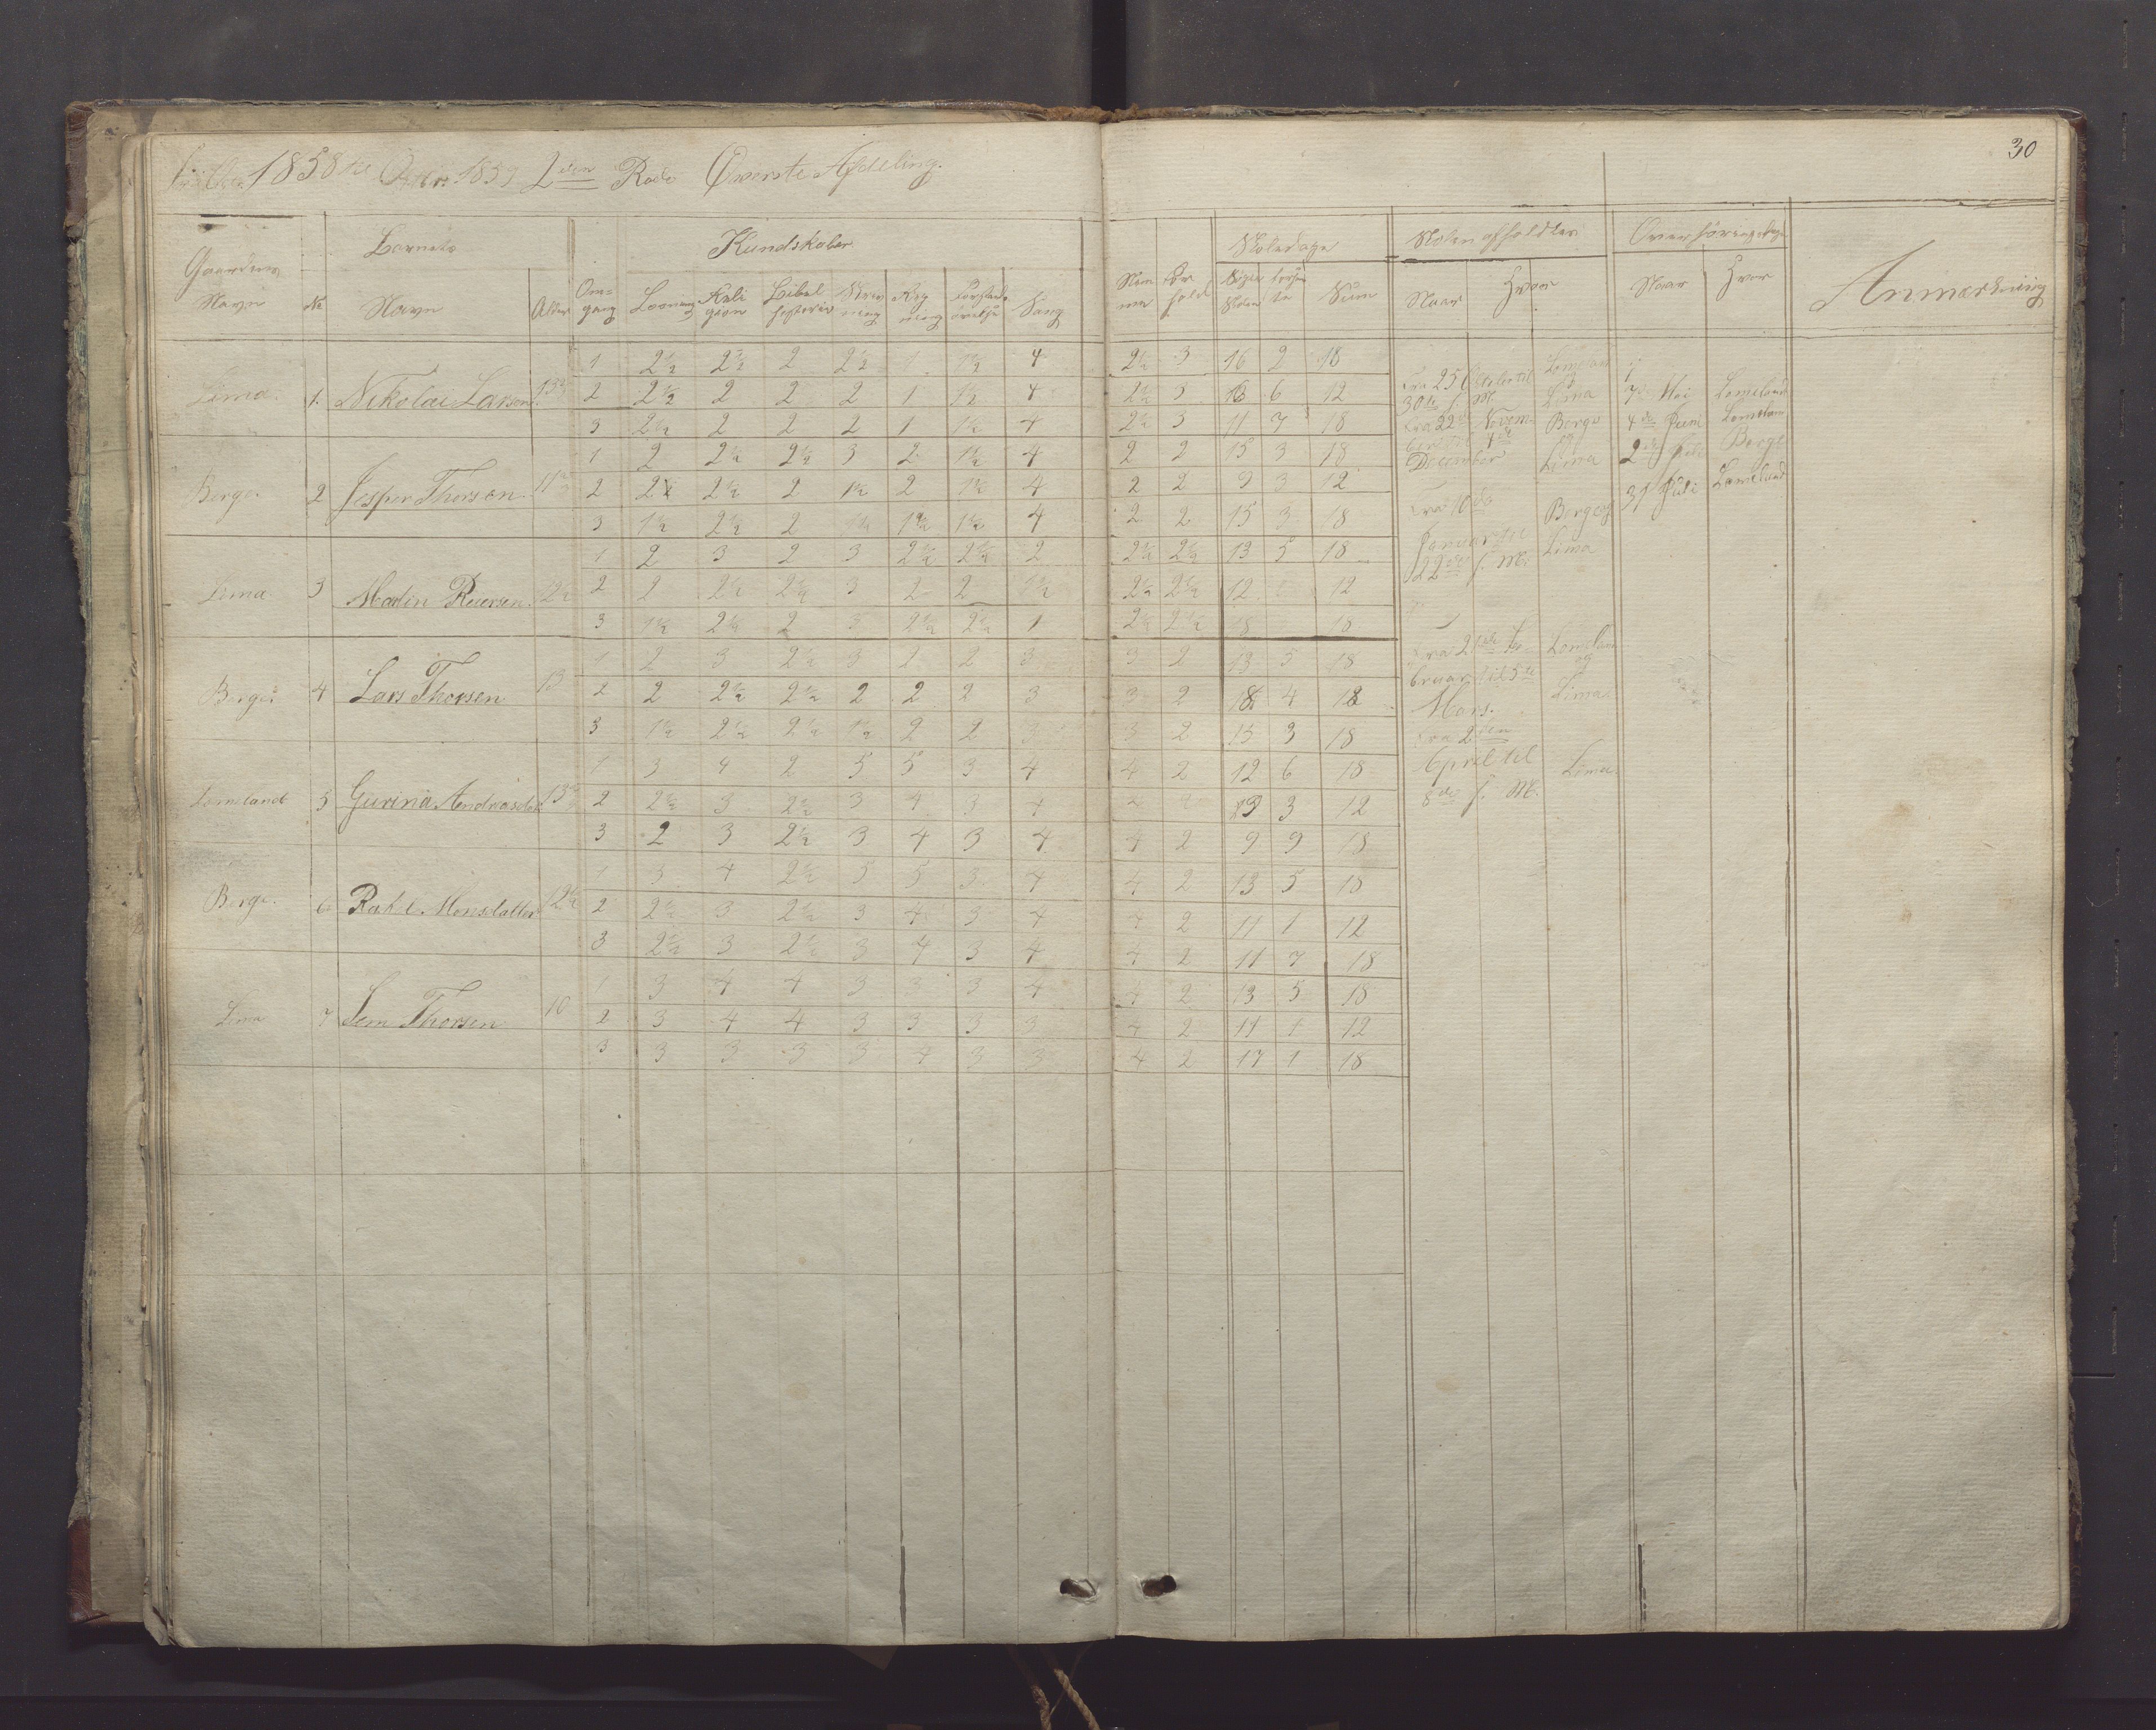 30
1858 til 1859 2den Rode Øverste Afdeling.
Gaardens Navn No Børnets Navn Alder Om=gang Kundskaber Læsning Religion Bibelhistorie Skrivning Regning Forstandsøvelse Sang
Nemme Forhold Skoledage Søgte Skolen Forsømte Sum Skolen afholdtes Naar Hvor Overhøringsdage Naar Hvor Anmærkning
Lima. 1. Nikolai Larsen. 13½
1 2½ 2½ 2 2½ 1 1½ 4 2½ 3 16 2 18
2 2½ 2 2 2 1 1½ 4 2½ 3 6 12
3 2½ 2 2 2 1 1½ 4 2½ 3 11 7 18
Berge. 2 Jesper Thorsen. 11½
1 2 2½ 2½ 3 2 1½ 4 2 2 15 3 18
2 2½ 2½ 2 1½ 2 1½ 4 2 2 9 3 12
3 1½ 2½ 2 1½ 1½ 1½ 4 2 2 15 3 18
Lima 3 Malin Reiersen. 12½
1 2 3 2 3 2½ 2½ 2 2½ 2½ 13 5 18
2 2 2½ 2½ 3 2 2 1½ 2½ 2½ 12 12
3 1½ 2½ 2 3 2½ 2½ 1 2½ 2½ 18 18
Berge. 4 Lars Thorsen 13
1 2 3 2½ 3 2 2 3 3 2 13 5 18
2 2 2½ 2½ 2 2 2 3 3 2 4
3 1½ 2½ 2½ 1½ 2 2 3 3 2 15 3 18
Lomeland 5 Gurina Andreasdat 13½
1 3 4 2 5 5 3 4 4 2 12 6 18
2 2½ 3 2½ 3 4 3 4 4 2 3 12
3 2 3 2½ 3 4 3 4 4 2 9 9 18
Berge. 6. Monsdatter 12½
1 3 4 2½ 5 5 3 4 4 2 13 5 18
2 2½ 3 2½ 3 4 3 4 4 2 11 1 12
3 2½ 3 2½ 3 4 3 4 4 2 11 7 18
Lima 7 Sem Thorsen 10
1 3 4 4 3 3 3 4 4 2 13 5 18
2 3 4 4 3 3 3 3 4 2 11 1 12
3 3 3 3 3 4 3 3 4 2 17 1 18
Fra 25 Octobr til Lomeland
30te s. M. og Lima
Fra 22de Novem- Berge
ber til 4de og
December Lima
Fra 10de Berge og
Januar til Lima
22de s. M.
Fra 21de Fe- Lomeland
bruar til 5te og
Mars. Lima.
Fra 2den
April til Lima.
8de s. M.
7 Mai Lomeland
4de Juni Lomeland
2den Juli Berge
31 Juli Lomeland